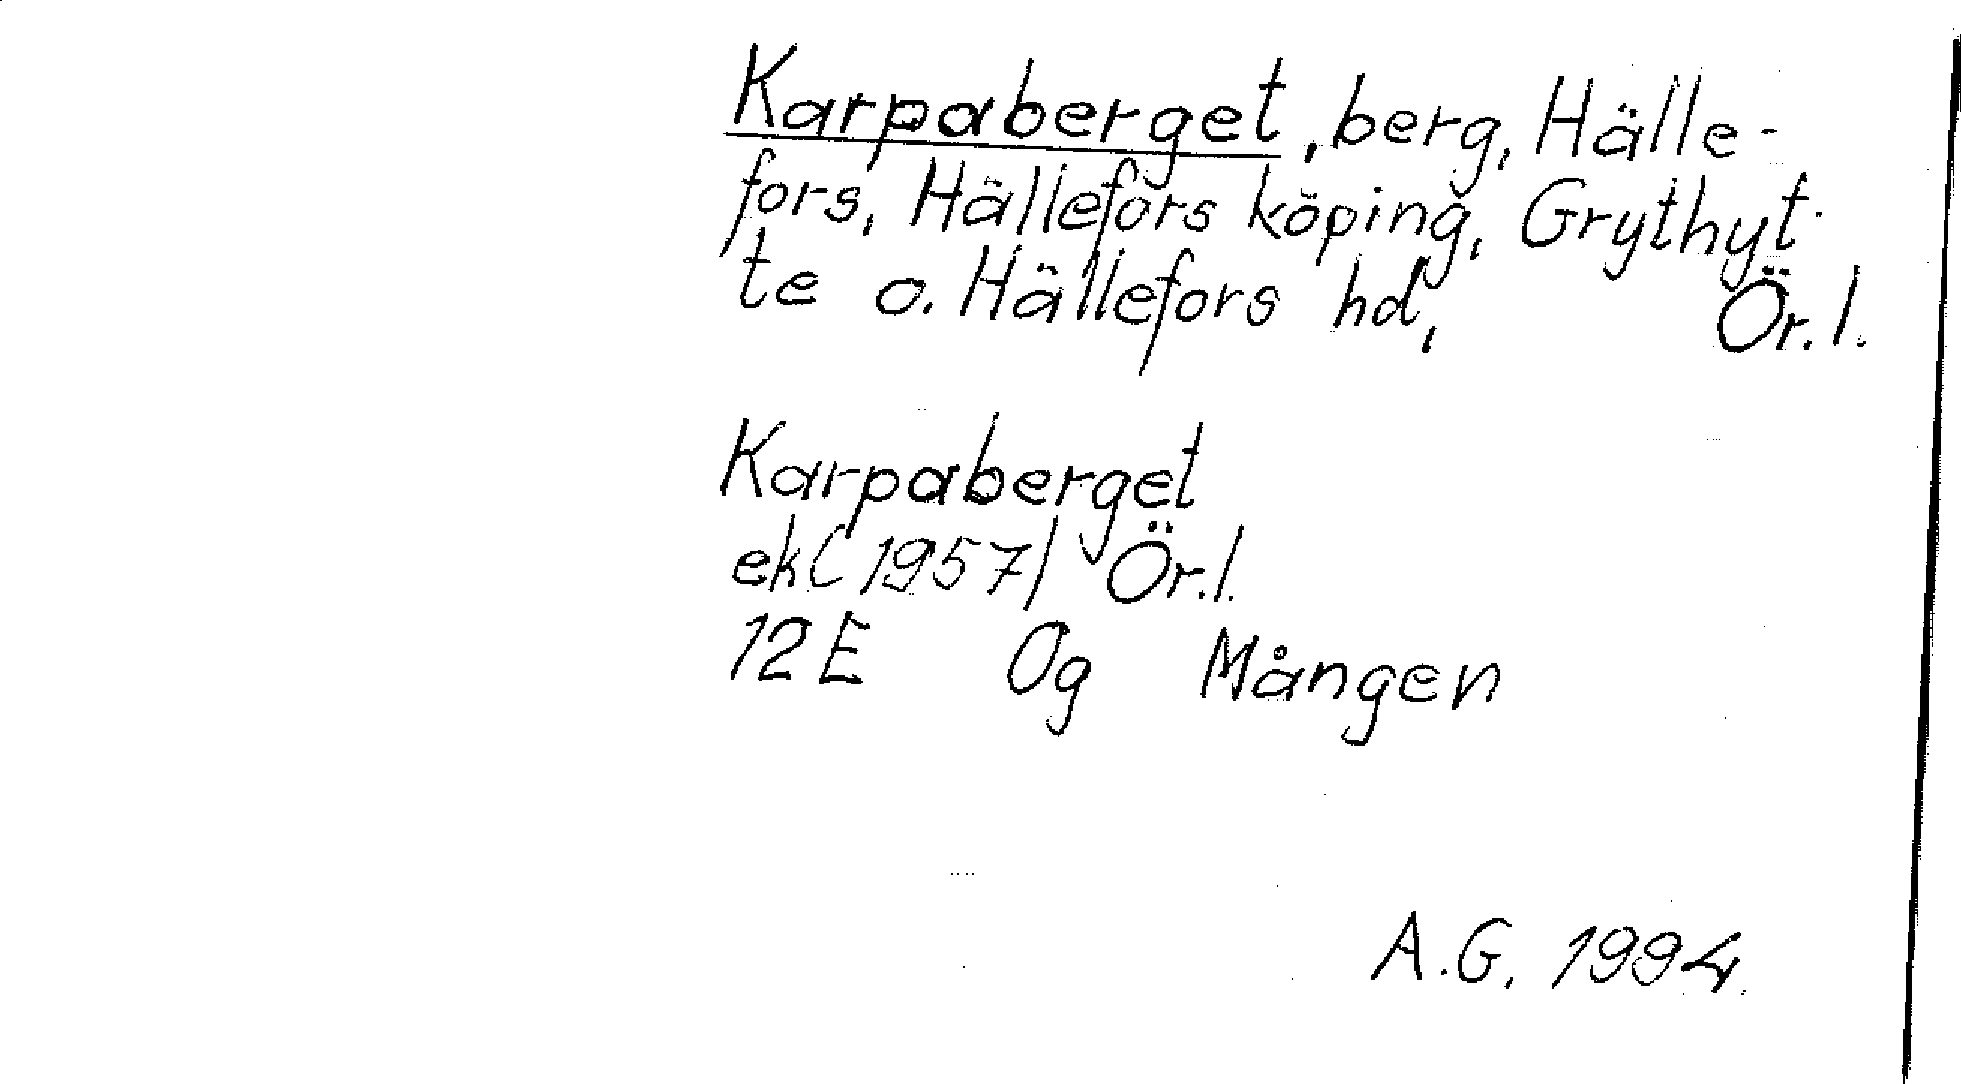 Karpaberget, berg, Hälle-
fors, Hällefors köping, Grythyt-
te o. Hällefors hd, Ör. l.
Karpaberget
ek (1957) Ör. l.
12E 0g Mången
A.G. 1994.